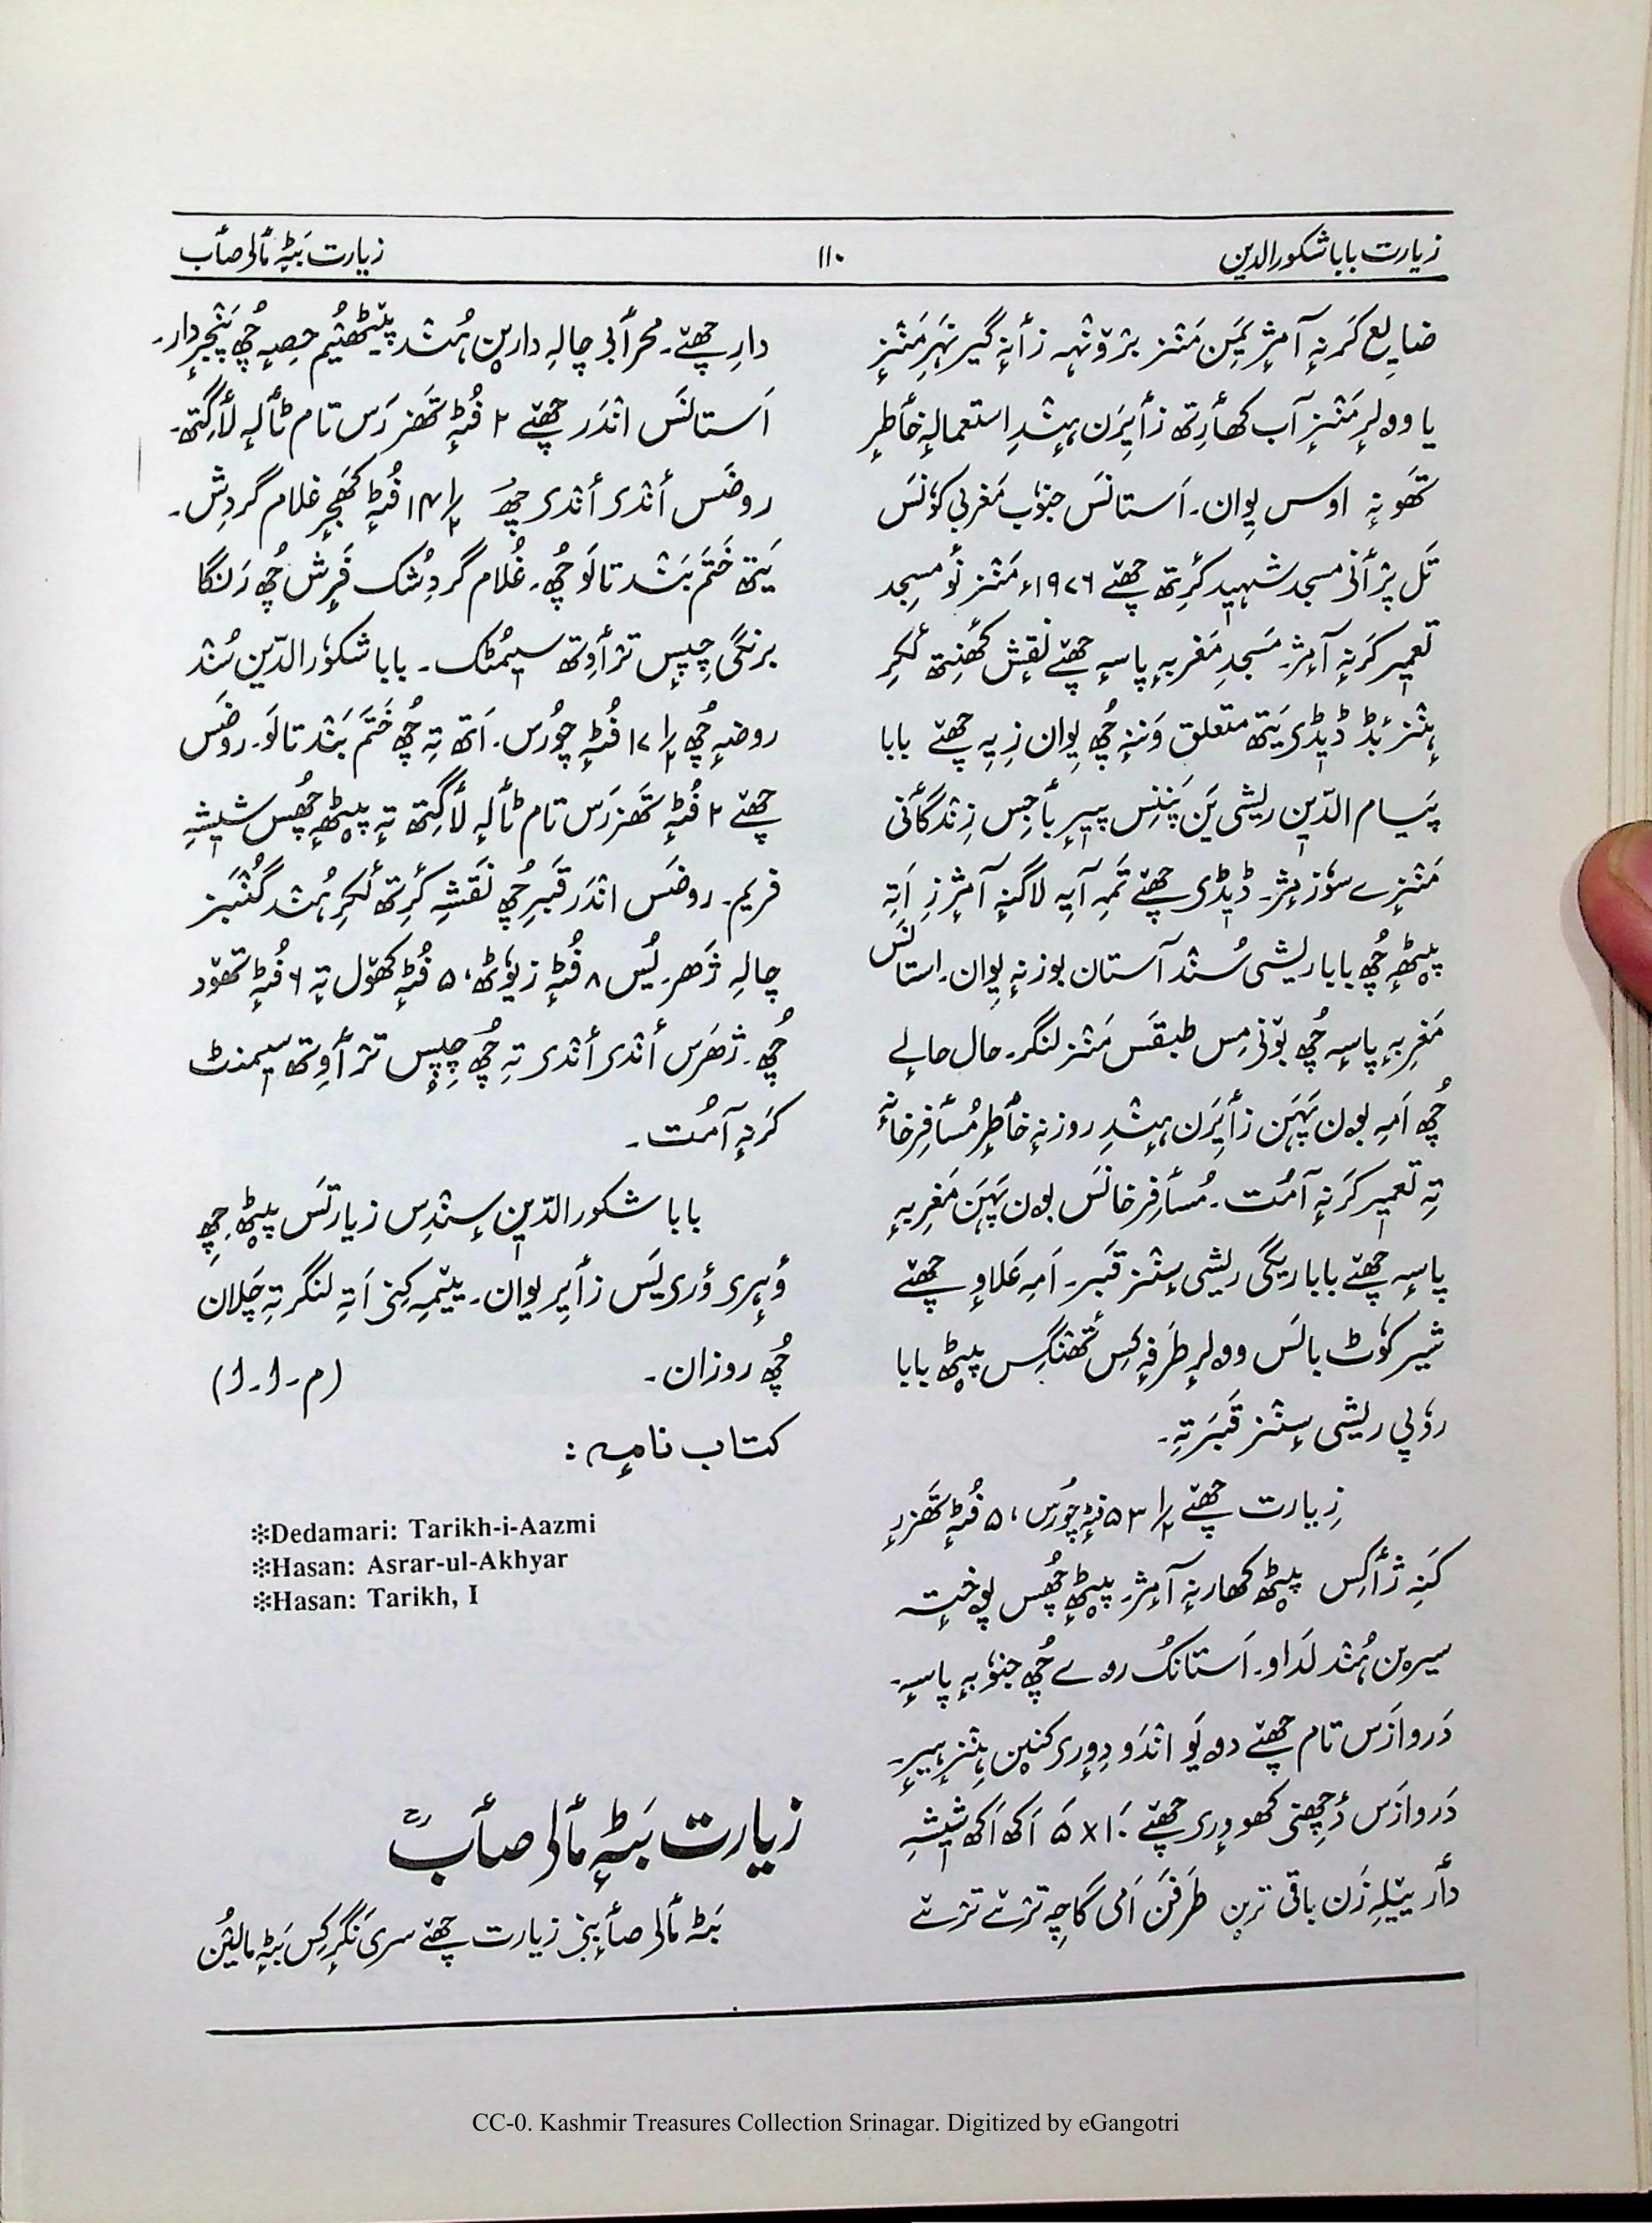 زیارت بابا شکورالدین
۱۱۰
زیارت بَٹہٕ مألۍ صأب
ضایع کَرنہٕ آمژٕ یَمِن مَنٛز برٛونٛہہ زأنہٕ گیر نہَرِ مَنٛزٕ
یا وولرِ مَنٛزٕ آب کھأرِتھ زأیِرَن ہِنٛدِ استعمالہٕ خأطرٕ
تھَونہٕ اوس یِوان۔ اَستانَس جنوٗب مَغربی کوٗنَس
تَل پرٛأنۍ مسجد شہید کٔرِتھ چھےٚ ۱۹۷۶ء مَنٛز نٔو مسجد
تعمیر کَرنہٕ آمژ۔ مَسجدِ مَغربہٕ پاسہٕ چھےٚ نقش کھٔنِتھ لٔکرِ
ہٕنٛز بٔڈ ڈیڈۍ یَتھ متعلق وَننہٕ چھُ یِوان زِ یہِ چھےٚ بابا
پَیام الدّین ریشی یَن پَننِس پیرِ بأجِس زِنٛدگأنی
مَنٛزٕے سوٗزمٕژ۔ ڈیڈۍ چھےٚ تَمہِ آیہِ لاگنہٕ آمٕژ زِ اَتہِ
پیٹھٕ چھُ بابا ریشی سُنٛد آستان بوزنہٕ یِوان۔ استانَس
مَغرِبہٕ پاسہٕ چھُ بۆنِمِس طبقَس مَنٛز لنگر۔ حال حالے
چھُ اَمہِ بۄن پَہَن زأیِرَن ہِنٛدِ روزنہٕ خأطرٕ مُسأفِر خانہٕ
تہِ تعمیر کَرنہٕ آمُت۔ مُسأفِر خانَس بۄن پَہَن مَغرِبہٕ
پاسہٕ چھےٚ بابا ریگی ریشی سٕنٛز قَبَر۔ اَمہِ عَلاوٕ چھےٚ
شیر کوٗٹ بالَس وولرِ طَرفہٕ کِس تھٔنٛگِس پیٹھ بابا
روٗپی ریشی سٕنٛز قَبَر تہِ۔
زِیارت چھےٚ ۵۳ ۱/۲ فُٹہٕ چوٗرَس، ۵ فُٹہٕ تھَزرِ
کَنہِ ژأکِس پیٹھ کھارنہٕ آمٕژ۔ پیٹھٕ چھُس پوختہٕ
سیرٮ۪ن ہُنٛد لَداو۔ اَستانُک رۄے چھُ جنوٗبہٕ پاسہٕ۔
دَروازَس تام چھےٚ دۄیَو انٛدَو دیٖورۍ کَنٮ۪ن ہٕنٛز ہیرٕ۔
دَروازَس دٔچھِنۍ کھووٕرۍ چھےٚ ۱۰ x ۵ اَکھ اَکھ شیٖشہٕ
دأر ییٚلہِ زَن باقی ترٛین طَرفَن اَمی گاچہِ ترٛےٚ ترٛےٚ
دارِ چھےٚ۔ محرأبی چالہِ دارٮ۪ن ہُنٛد پیٚٹھیُم حِصہٕ چھُ پَنٛجرٕ دار۔
اَستانَس انٛدَر چھےٚ ۲ فُٹہٕ تھَزرَس تام ٹألہٕ لأگِتھ۔
روضَس أنٛدۍ أنٛدۍ چھُ ۱۴ ۱/۲ فُٹہٕ کھَجرٕ غلام گردِش۔
یَتھ خَتَم بَنٛد تالَو چھُ۔ غُلام گردِشُک فَرِش چھُ رَنگا
برنگی چِپس ترٛأوِتھ سیمُٹک۔ بابا شکوٗرالدّین سُنٛد
روضہٕ چھُ ۱۷ ۱/۲ فُٹہٕ چوٗرُس۔ اَتھ تہِ چھُ خَتَم بَنٛد تالَو۔ روضَس
چھےٚ ۲ فُٹہٕ تھَزرَس تام ٹألہٕ لأگِتھ تہٕ پیٹھٕ چھُس شیشہٕ
فریم۔ روضَس انٛدَر قَبرِ چھُ نَقشہٕ کٔرِتھ لٔکرِ ہُنٛد گُنٛبَز
چالہِ ژَھر۔ یُس ۸ فُٹہٕ زیوٗٹھ، ۵ فُٹہٕ کھۆل تہٕ ۶ فُٹہٕ تھۆد
چھُ۔ ژھَرَس أنٛدۍ أنٛدۍ تہِ چھُ چِپس ترٛأوِتھ سیمنٹ
کَرنہٕ آمُت۔
بابا شکورالدّین سٕنٛدِس زیارتَس پیٹھ چھِ
وٕہرۍ وٕریَس زأیِر یِوان۔ ییٚمہِ کِنۍ اَتہِ لنگر تہِ چَلان
چھُ روزان۔ (م-ا-ا)
کتاب نامہٕ :
*Dedamari: Tarikh-i-Aazmi
*Hasan: Asrar-ul-Akhyar
*Hasan: Tarikh, I
زیارت بَٹہٕ مألۍ صأبؒ
بَٹہٕ مألۍ صأبنۍ زیارت چھےٚ سری نَگرٕ کِس بَٹہٕ مالیُن
CC-0. Kashmir Treasures Collection Srinagar. Digitized by eGangotri